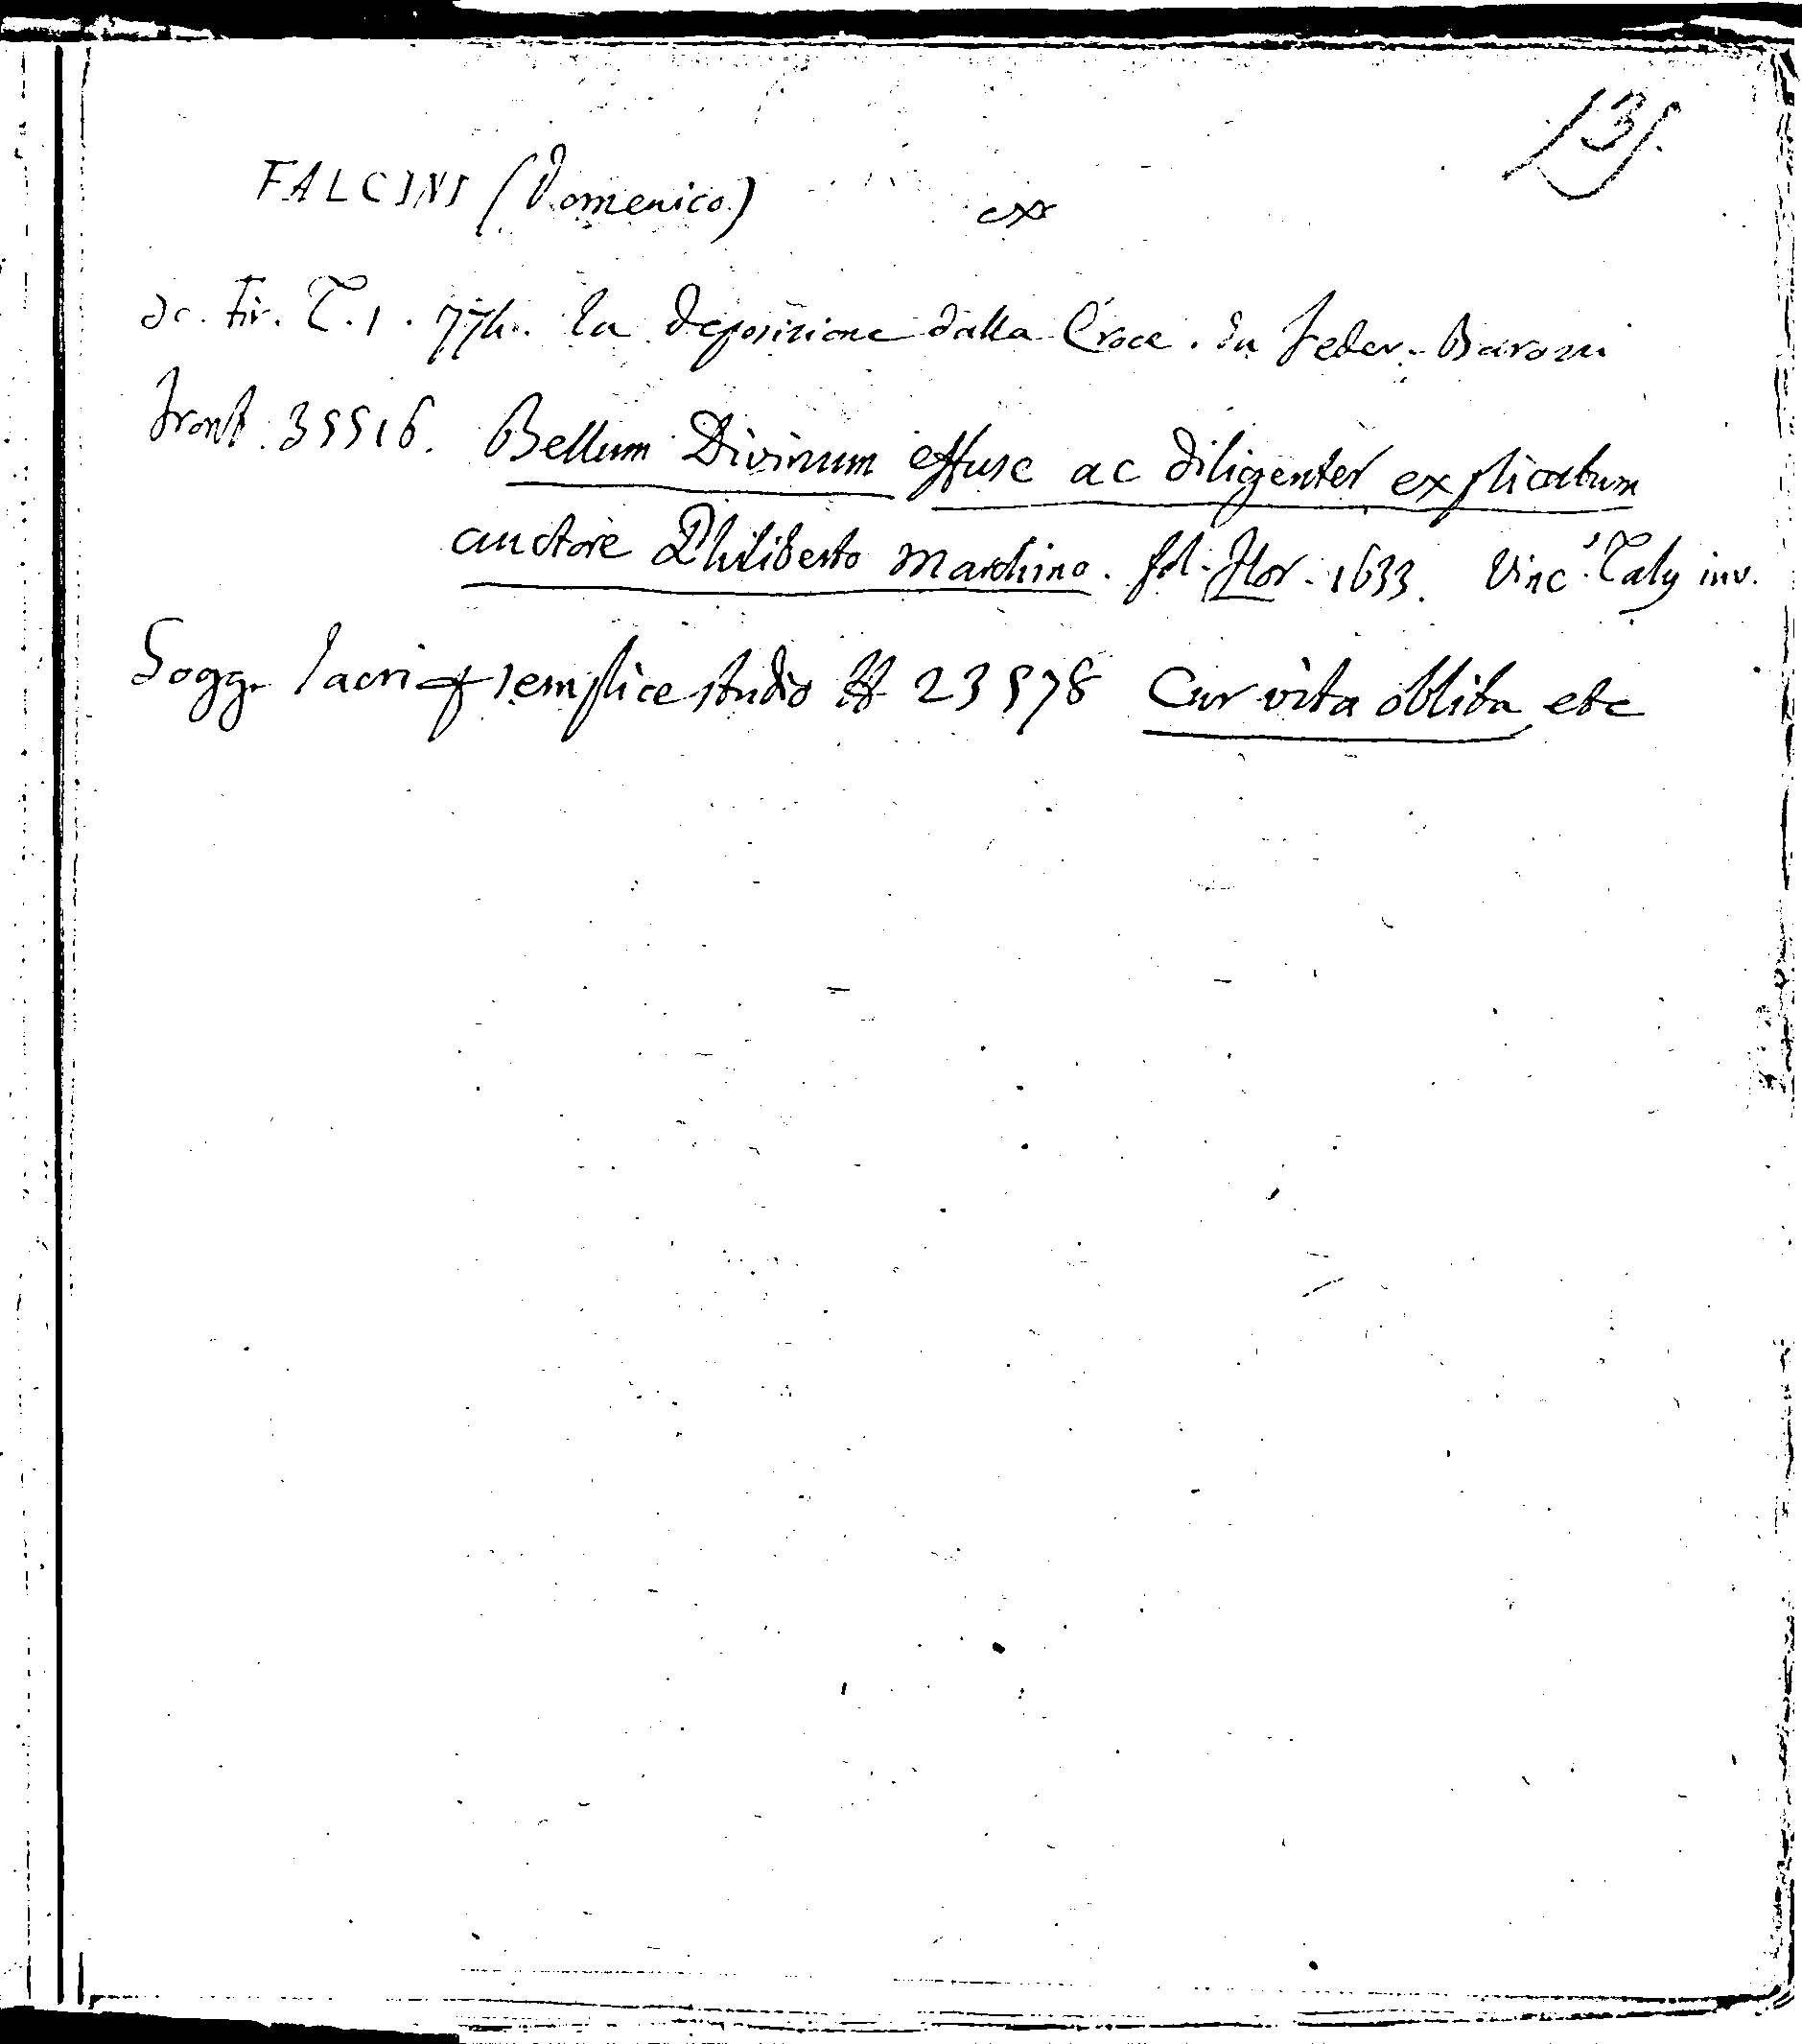 135.
FALCINI (Domenico) cxr
Sc. Fir. T. 1. 774. La Deposizione dalla Croce. Da Feder. Barozzi
Front. 35516. Bellum Divinum effuse ac diligenter explicatum
auctore Philiberto Marchino. fol. Flor. 1633. Vinc. Taly inv.
Sogg. sacri semplice studio 23578 Cur vita oblita etc